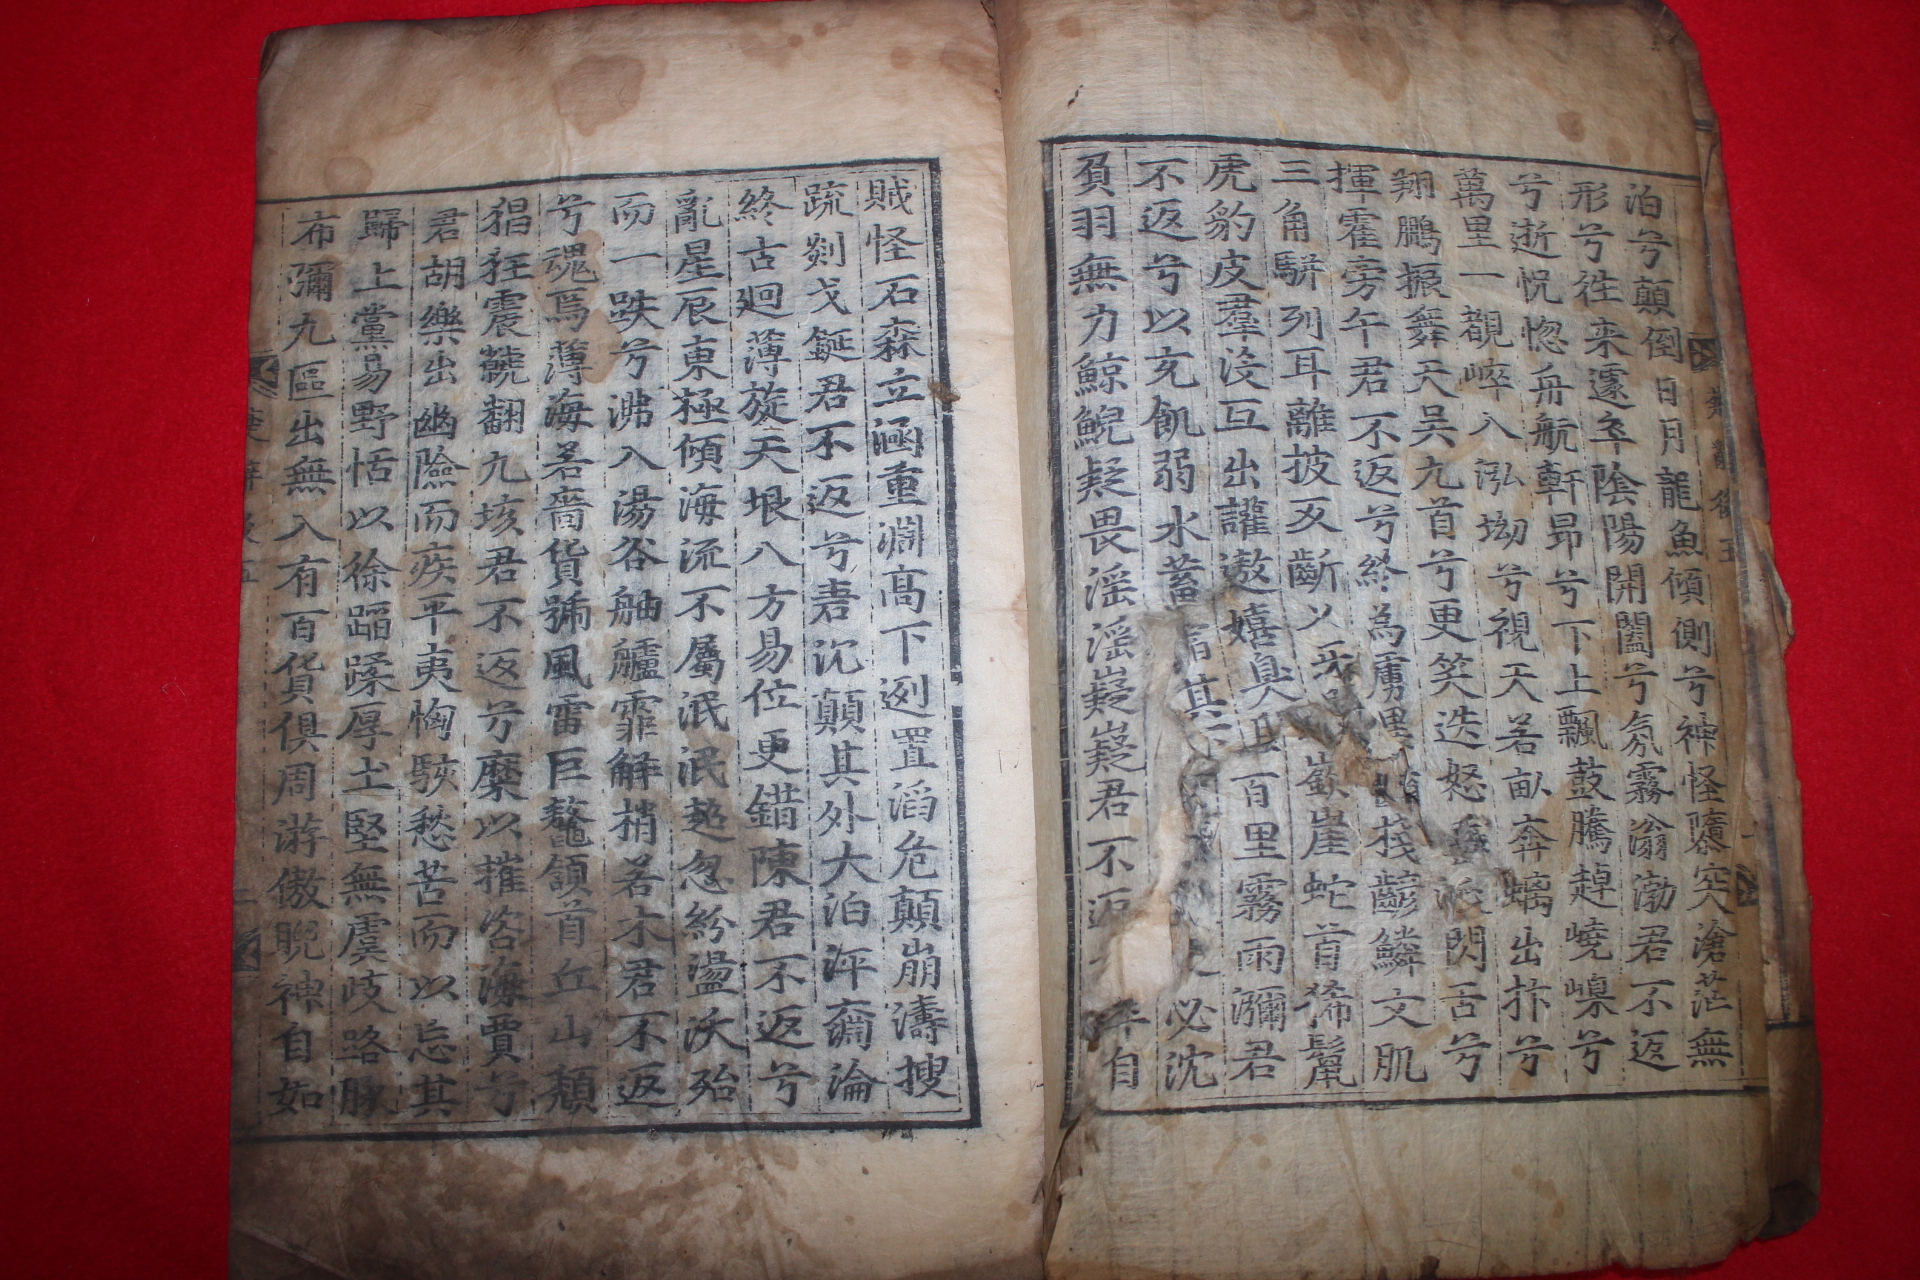 泊兮顛倒日月龍魚傾側兮神怪隳突滄茫無
形兮徃来遽卒陰陽開闔兮氛霧滃渤君不返
兮逝怳惚舟航軒昂兮下上飄鼓騰趠嶢嵲兮
萬里一覩崒入泓坳兮視天若畝奔螭出抃兮
翔鵬振舞天吳九首兮更笑迭怒垂涎閃舌兮
揮霍旁午君不返兮終為虜黑齒棧齴鱗文肌
三角騈列耳離披反齗乂牙嶔崖蛇首豨鬣
虎豹皮羣沒互出讙遨嬉臭百里霧雨瀰君
不返兮以充飢弱水蓄縮其必沈
負羽無力鯨鯢疑畏淫淫嶷嶷君不返卒自
賊怪石森立涵重淵高下迾置滔危顛崩濤搜
疏剡戈鋋君不返兮舂沉顛其外大泊泙奫淪
終古迴薄旋天垠八方易位更錯陳君不返兮
亂星辰東極傾海流不屬泯泯超忽紛盪沃殆
而一跌兮沸入湯谷舳艫霏解梢若木君不返
兮魂焉薄海若嗇貨號風雷巨鼇頷首丘山頹
猖狂震虩翻九垓君不返兮糜以摧咨海賈兮
君胡樂出幽險而疾平夷恟駭愁苦而以忘其
歸上黨易野恬以徐蹈蹂厚土堅無虞歧路脉
布彌九區出無入有百貨俱周游傲睨神自如